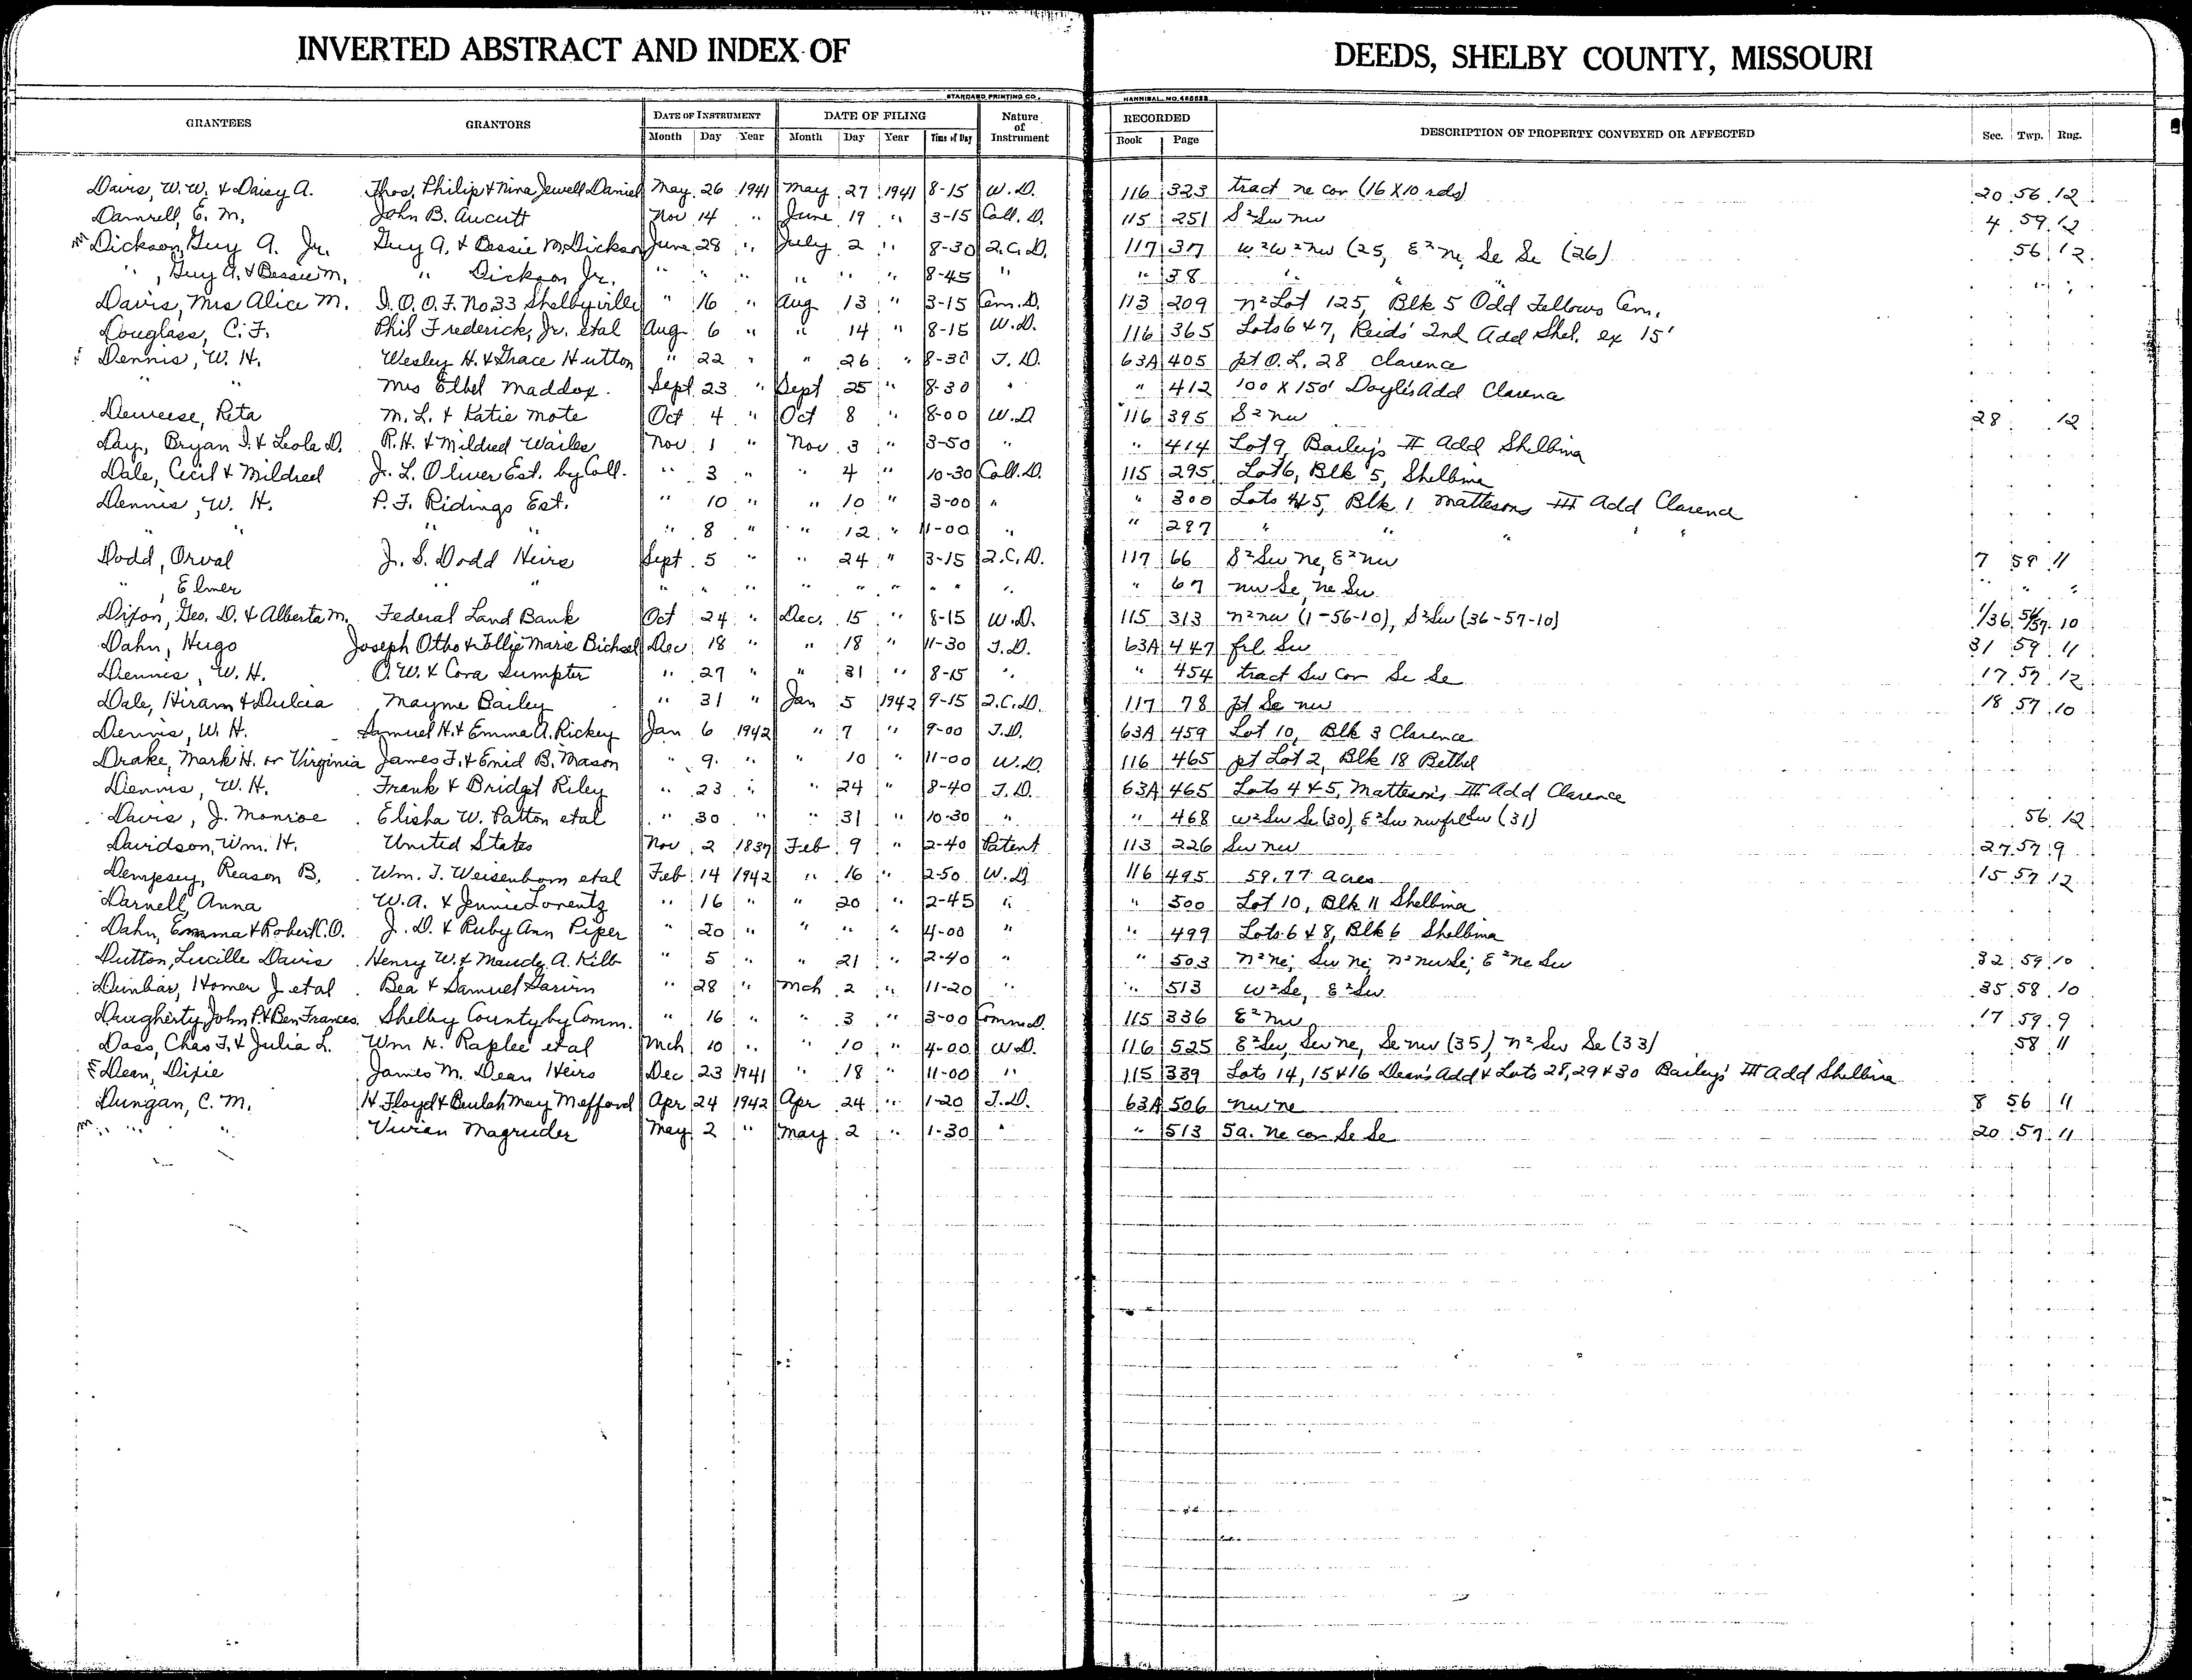 INVERTED ABSTRACT AND INDEX OF DEEDS, SHELBY COUNTY, MISSOURI
STANDARD PRINTING CO. HANNIBAL, NO.
GRANTEES GRANTORS DATE OF INSTRUMENT DATE OF FILING Nature of Instrument RECORDED DESCRIPTION OF PROPERTY CONVEYED OR AFFECTED Sec. Twp. Rng.
Month Day Year Month Day Year Time of Day Book Page
Davis, W. W. & Daisy A. Thos. Philip & Nina Jewell Daniel May 26 1941 May 27 1941 8-15 W.D. 116 323 tract ne cor (16 X 10 rds) 20 56 12
Damrell, E. M. John B. Aucutt Nov 14 " June 19 " 3-15 Coll. D. 115 251 S²Sw nw 4 59 12
Dickson, Guy A. Jr. Guy A. & Bessie M. Dickson June 28 " July 2 " 8-30 Q.C.D. 117 37 w²w²nw (25, E²ne, Se Se (26) 56 12
" , Guy A. & Bessie M. " Dickson Jr. " " " " " " 8-45 " " 38 " " " "
Davis, Mrs Alice M. I.O.O.F. No. 33 Shelbyville " 16 " Aug 13 " 3-15 Cem. D. 113 209 n²Lot 125, Blk 5 Odd Fellows Cem.
Douglass, C. F. Phil Frederick, Jr. etal Aug 6 " " 14 " 8-15 W.D. 116 365 Lots 6 & 7, Reids' 2nd Add Shel. ex 15'
Dennis, W. H. Wesley H. & Grace Hutton " 22 " " 26 " 8-30 T.D. 63A 405 pt O.L. 28 Clarence
" " Mrs Ethel Maddox Sept 23 " Sept 25 " 8-30 " " 412 100 X 150' Doyle's Add Clarence
Deweese, Reta M. L. & Katie Mote Oct 4 " Oct 8 " 8-00 W.D 116 395 S²nw 28 12
Day, Bryan I. & Leola D. R.H. & Mildred Wailes Nov 1 " Nov 3 " 3-50 " " 414 Lot 9, Bailey's II Add Shelbina
Dale, Cecil & Mildred J. L. Oliver Est. by Coll. " 3 " " 4 " 10-30 Coll. D. 115 295 Lot 6, Blk 5, Shelbina
Dennis, W. H. P. F. Ridings Est. " 10 " " 10 " 3-00 " " 300 Lots 4&5, Blk 1 Mattesons III Add Clarence
" " " " " 8 " " 12 " 11-00 " " 287 " " " " "
Dodd, Orval J. S. Dodd Heirs Sept 5 " " 24 " 3-15 Q.C.D. 117 66 S²Sw ne, E²nw 7 59 11
" , Elmer " " " " " " " " " " " 67 nw Se, ne Sw " " "
Dixon, Geo. D. & Alberta M. Federal Land Bank Oct 24 " Dec. 15 " 8-15 W.D. 115 313 n²nw (1-56-10), S²Sw (36-57-10) 1/36 56/57 10
Dahn, Hugo Joseph Otho & Tollie Marie Bichsel Dec 18 " " 18 " 11-30 T.D. 63A 447 frl Sw 31 59 11
Dennis, W. H. O. W. & Cora Sumpter " 27 " " 31 " 8-15 " " 454 tract Sw Cor Se Se 17 57 12
Dale, Hiram & Dulcia Mayme Bailey " 31 " Jan 5 1942 9-15 Q.C.D. 117 78 pt Se nw 18 57 10
Dennis, W. H. Samuel H. & Emma A. Rickey Jan 6 1942 " 7 " 9-00 T.D. 63A 459 Lot 10, Blk 3 Clarence
Drake, Mark H. or Virginia James F. & Enid B. Mason " 9 " " 10 " 11-00 W.D. 116 465 pt Lot 2, Blk 18 Bethel
Dennis, W. H. Frank & Bridget Riley " 23 " " 24 " 8-40 T.D. 63A 465 Lots 4 & 5, Matteson's III Add Clarence
Davis, J. Monroe Elisha W. Patton etal " 30 " " 31 " 10-30 " " 468 w²Sw Se (30), E²Sw nwfrlSw (31) 56 12
Davidson, Wm. H. United States Nov 2 1837 Feb 9 " 2-40 Patent 113 226 Sw nw 27 57 9
Dempsey, Reason B. Wm. T. Weisenborn etal Feb 14 1942 " 16 " 2-50 W.D 116 495 59.77 acres 15 57 12
Darnell, Anna W. A. & Jennie Lorentz " 16 " " 20 " 2-45 " " 500 Lot 10, Blk 11 Shelbina
Dahn, Emma & Robert C. O. J. D. & Ruby Ann Piper " 20 " " " " 4-00 " " 499 Lots 6 & 8, Blk 6 Shelbina
Dutton, Lucille Davis Henry W. & Maudy A. Kilb " 5 " " 21 " 2-40 " " 503 n²ne; Sw ne; n²nwSe; E²ne Sw 32 59 10
Dunbar, Homer J etal Bea & Samuel Garvin " 28 " Mch 2 " 11-20 " " 513 w²Se, E²Sw 35 58 10
Daugherty, John P. & Ben Frances Shelby County by Comm. " 16 " " 3 " 3-00 Comm D. 115 336 E²nw 17 59 9
Doss, Chas F. & Julia L. Wm H. Raplee et al Mch 10 " " 10 " 4-00 W.D. 116 525 E²Sw, Sw ne, Se nw (35), n²Sw Se (33) 58 11
Dean, Dixie James M. Dean Heirs Dec 23 1941 " 18 " 11-00 " 115 339 Lots 14, 15 & 16 Dean's Add & Lots 28, 29 & 30 Bailey's III Add Shelbina
Dungan, C. M. H Floyd & Beulah May Mefford Apr 24 1942 Apr 24 " 1-20 T.D. 63A 506 nw ne 8 56 11
" " Vivian Magruder May 2 " May 2 " 1-30 " " 513 5a. ne cor Se Se 20 57 11